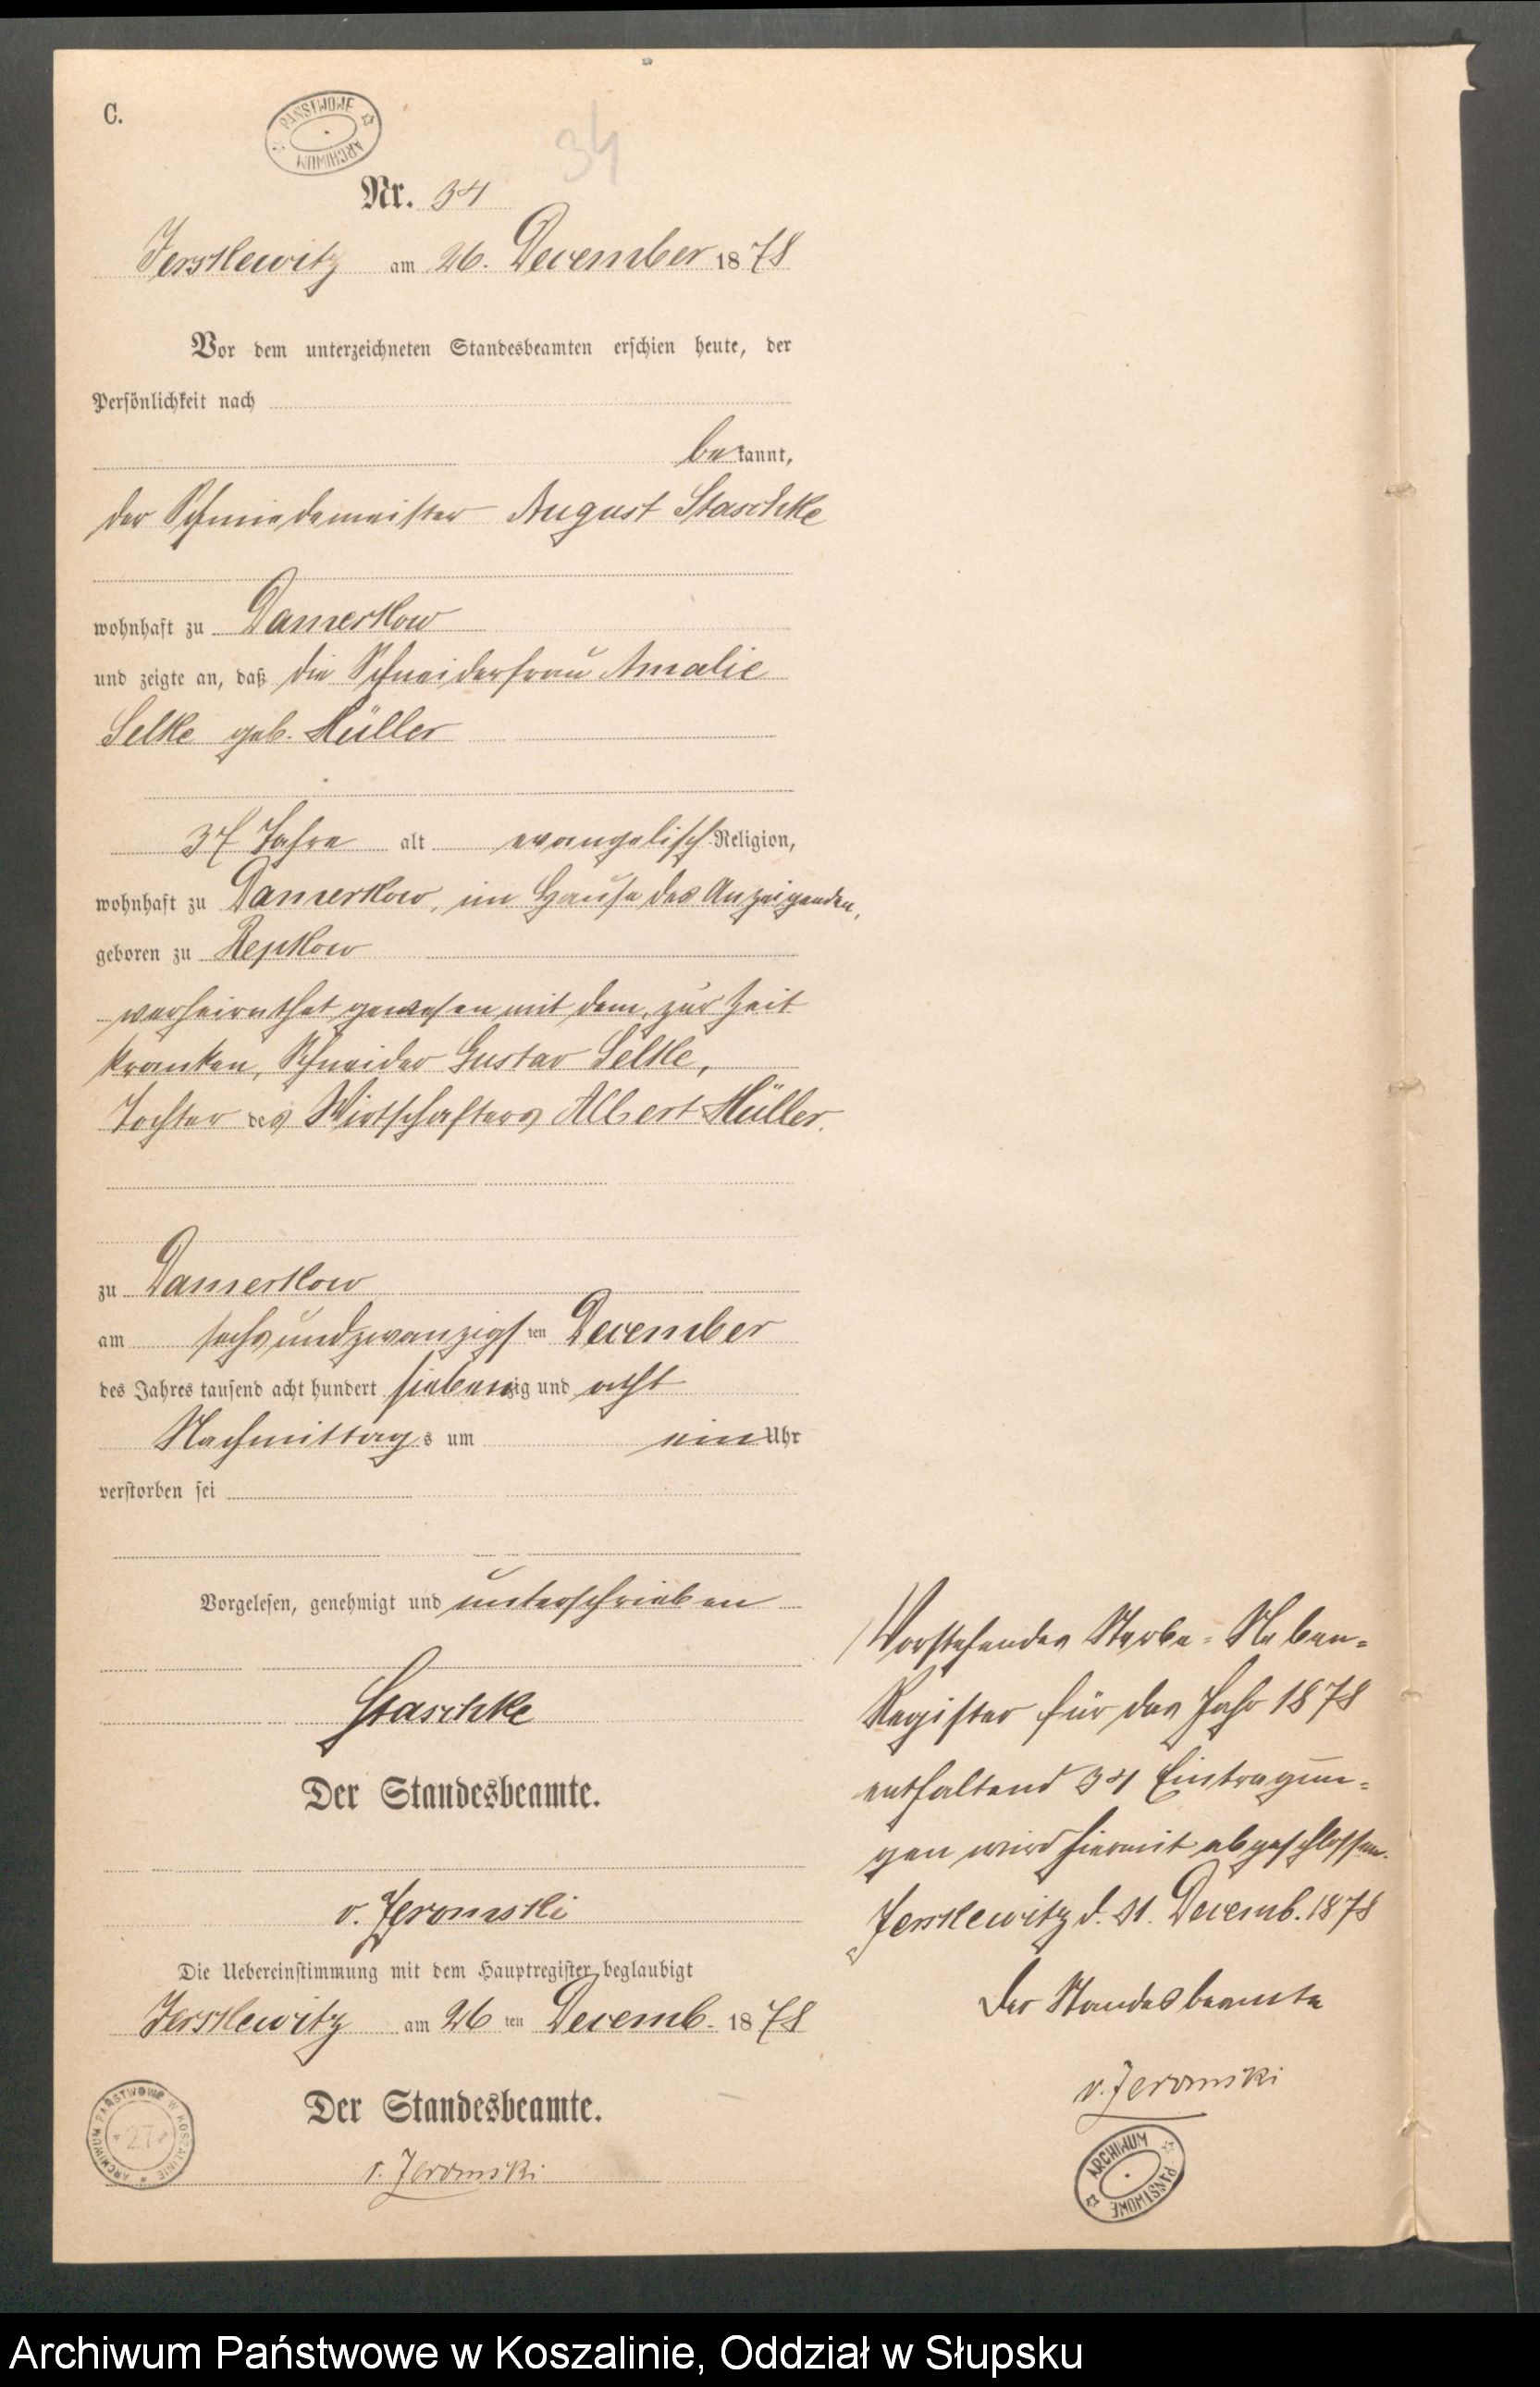 C.
PAŃSTWOWE ARCHIWUM
34
Nr. 34
Jerskewitz am 26. December 1878
Vor dem unterzeichneten Standesbeamten erschien heute, der
Persönlichkeit nach
bekannt,
der Schmiedemeister August Staschke
wohnhaft zu Damerkow
und zeigte an, daß die Schneiderfrau Amalie
Selke geb. Müller
37 Jahre alt evangelisch Religion,
wohnhaft zu Damerkow, im Hause des Anzeigenden,
geboren zu Repkow
verheirathet gewesen mit dem, zur Zeit
kranken, Schneider Gustav Selke,
Tochter des Wirtschafters Albert Müller.
zu Damerkow
am sechsundzwanzigsten December
des Jahres tausend acht hundert siebenzig und acht
Nachmittags um ein Uhr
verstorben sei
Vorgelesen, genehmigt und unterschrieben
Staschke
Der Standesbeamte.
v. Jeromski
Die Uebereinstimmung mit dem Hauptregister beglaubigt
Jerskewitz am 26 ten Decemb. 1878
Der Standesbeamte.
v. Jeromski
ARCHIWUM PAŃSTWOWE W KOSZALINIE
27
Vorstehendes Sterbe-Neben-
Register für das Jahr 1878
enthaltend 34 Eintragun-
gen wird hiermit abgeschlossen.
Jerskewitz d. 31. Decemb. 1878
Der Standesbeamte
v. Jeromski
ARCHIWUM PAŃSTWOWE
Archiwum Państwowe w Koszalinie, Oddział w Słupsku